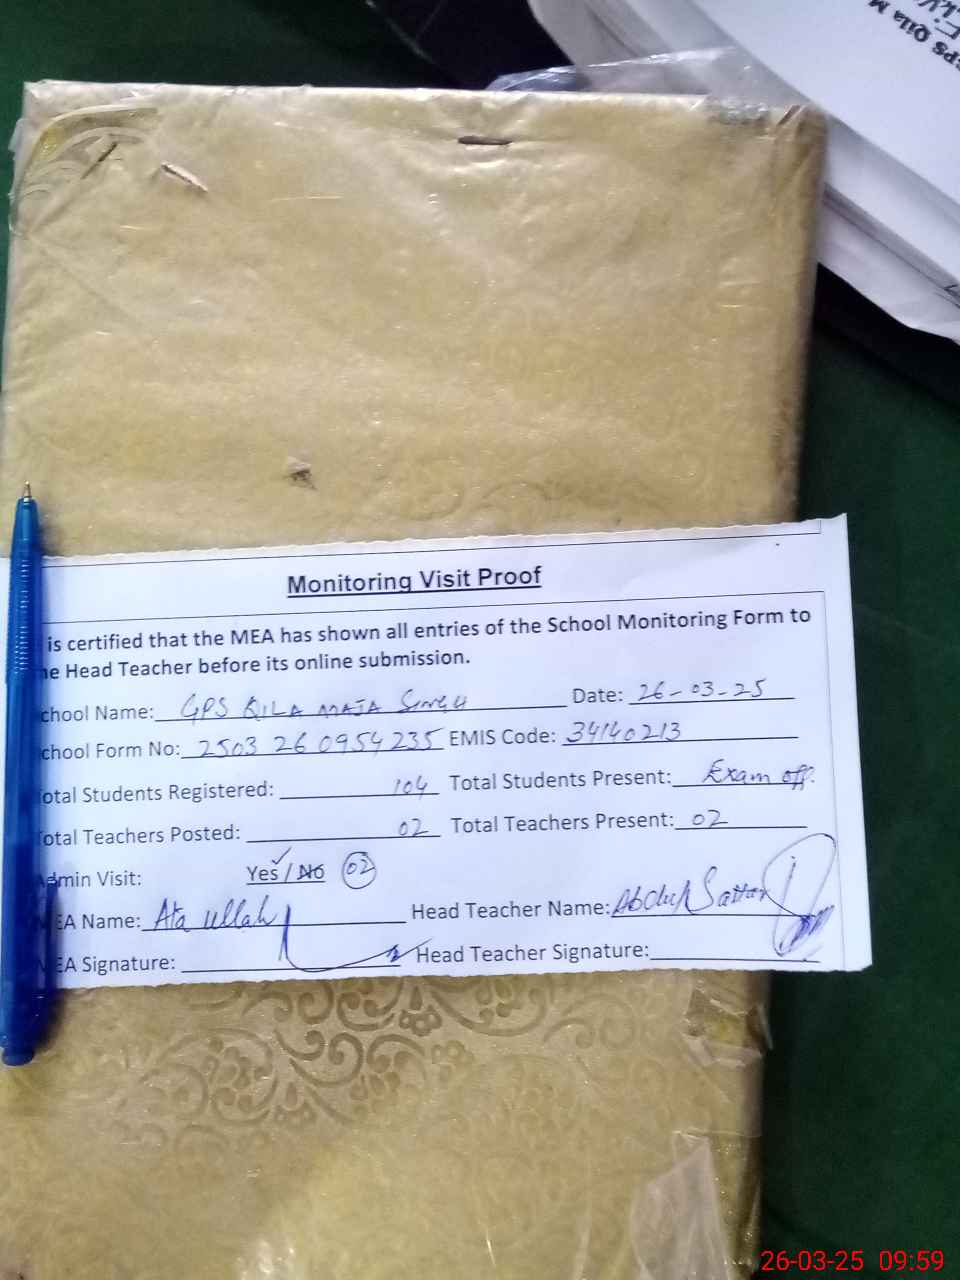 EPS Qila M
Monitoring Visit Proof
is certified that the MEA has shown all entries of the School Monitoring Form to
he Head Teacher before its online submission.
chool Name: GPS QILA MAJA SINGH Date: 26-03-25
chool Form No: 2503 26 0954235 EMIS Code: 34140213
otal Students Registered: 104 Total Students Present: Exam off.
otal Teachers Posted: 02 Total Teachers Present: 02
dmin Visit: Yes / No 02
EA Name: Ata ullah Head Teacher Name: Abdul Sattar
EA Signature: Head Teacher Signature:
26-03-25 09:59